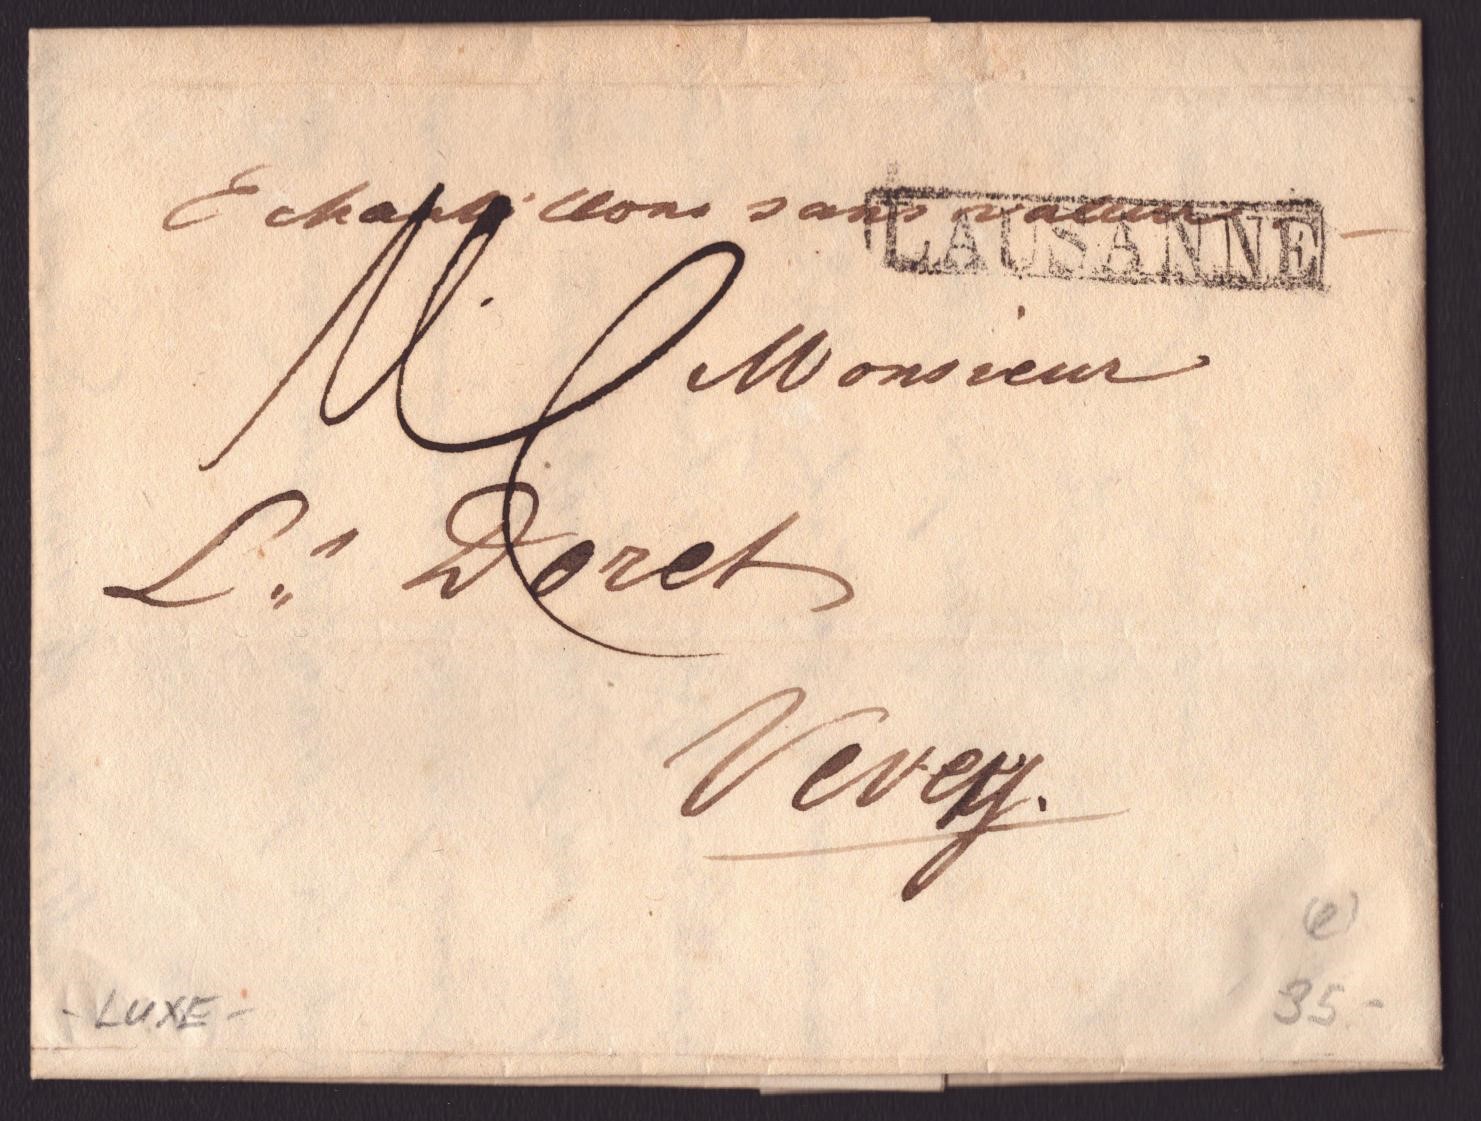 Echantillons sans valeur
LAUSANNE
Monsieur
L.s Doret
Vevey.
(e)
- LUXE -
35.-